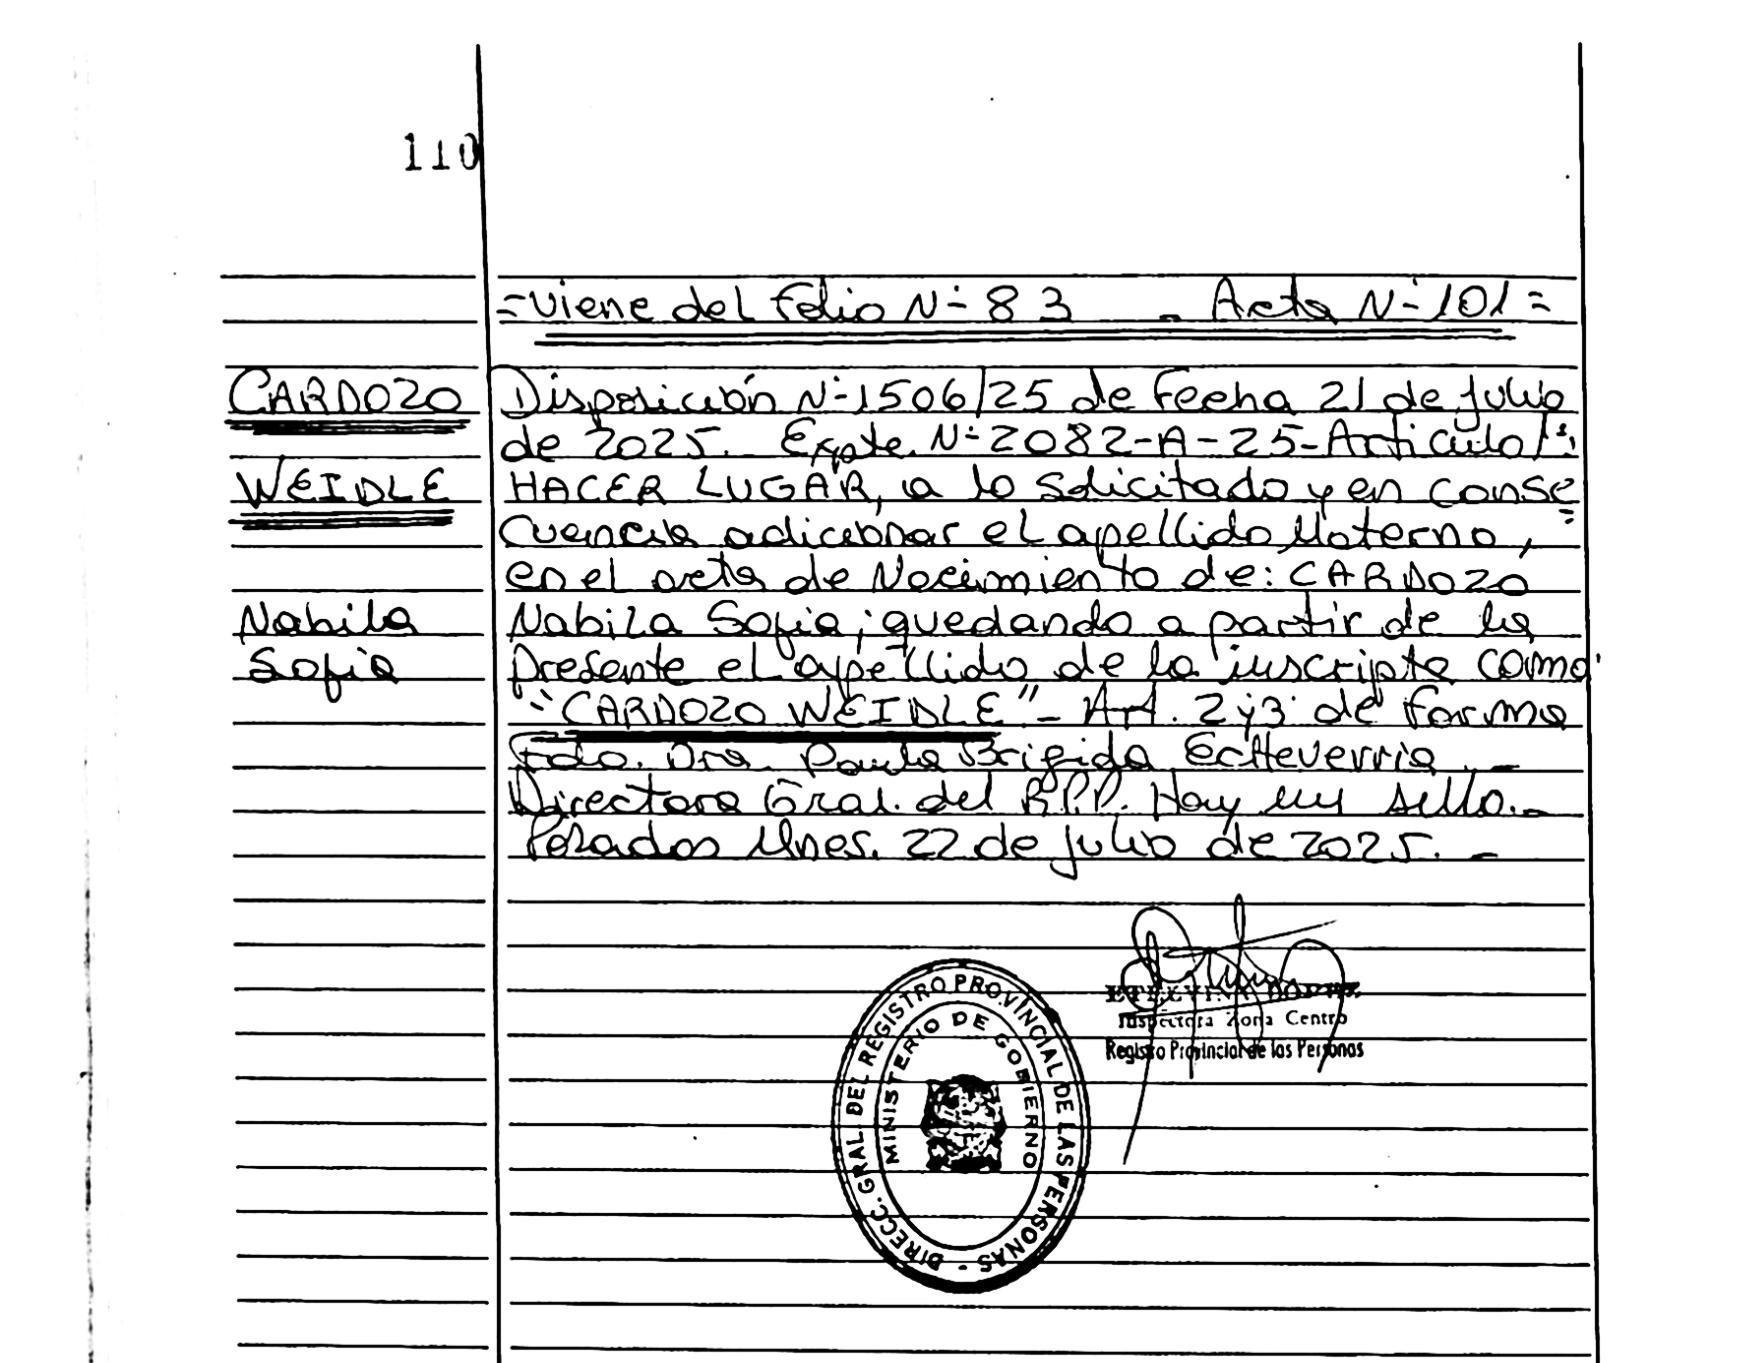 110
=Viene del Folio Nº 83 - Acta Nº 101=
CARDOZO
WEIDLE
Nabila
Sofia
Disposición Nº 1506/25 de Fecha 21 de julio
de 2025. Expte. Nº 2082-A-25-Articulo 1º:
HACER LUGAR, a lo solicitado y en conse
cuencia adicionar el apellido Materno,
en el acta de Nacimiento de: CARDOZO
Nabila Sofia; quedando a partir de la
presente el apellido de la inscripta como
"CARDOZO WEIDLE"- Art. 2 y 3 de forma
Fdo. Dra. Paula Brigida Echeverria.-
Directora Gral. del R.P.P. Hay un sello.-
Posadas Mnes. 22 de julio de 2025.-
Inspectora Zona Centro
Registro Provincial de las Personas
DIRECC. GRAL. DEL REGISTRO PROVINCIAL DE LAS PERSONAS -
MINISTERIO DE GOBIERNO